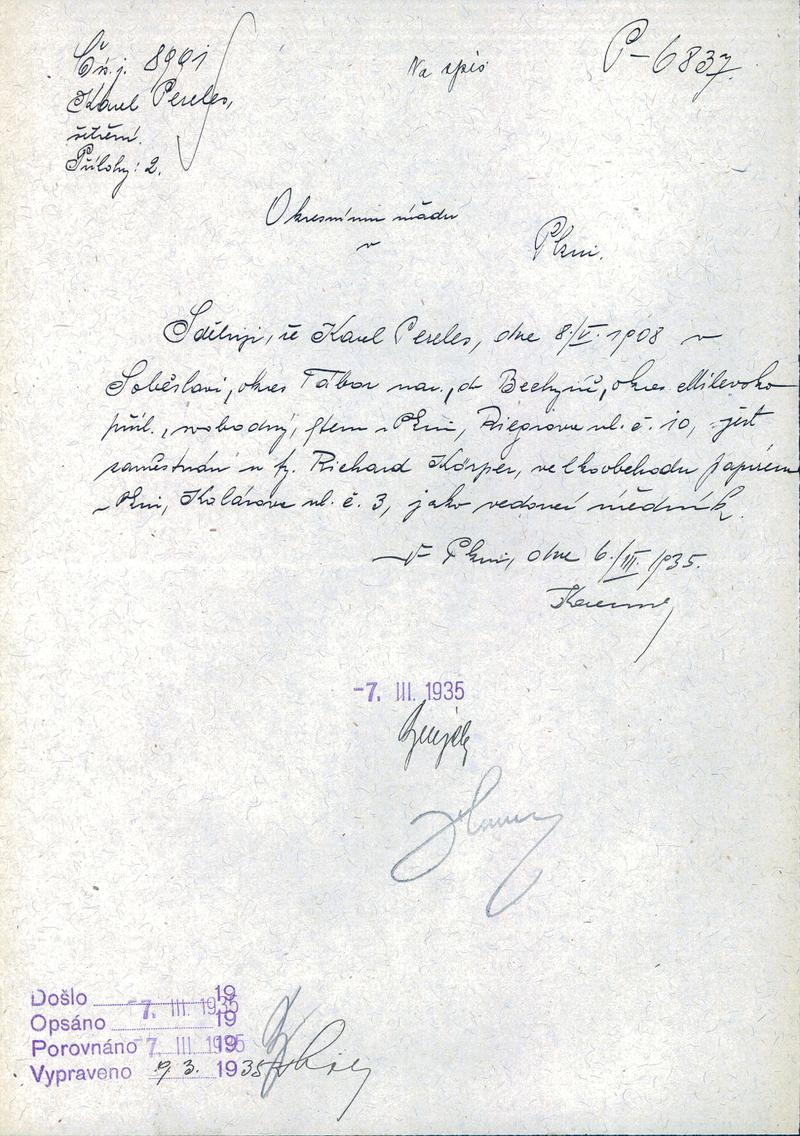 Čís.j. 8991
Na spis
P-6837.
Karel Pereles,
šetření.
Přílohy: 2.
Okresnímu úřadu
v Plzni.
Sděluji, že Karel Pereles, dne 8./V. 1908 v
Soběslavi, okres Tábor nar., do Bechyně, okres Milevsko
přísl., svobodný, bytem v Plzni, Riegrova ul. č. 10, jest
zaměstnán u fy. Richard Körper, velkoobchodu papírem
v Plzni, Kolárova ul. č. 3, jako vedoucí úředník.
V Plzni, dne 6./III. 1935.
-7. III. 1935
Došlo -7. III. 1935 19
Opsáno 19
Porovnáno -7. III. 1935 19
Vypraveno 9. 3. 1935